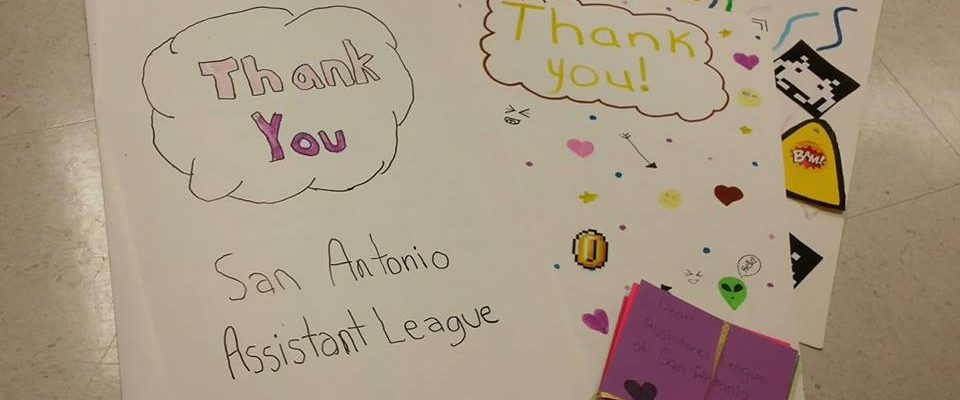 Thank
You
San Antonio
Assistant League
Thank
you!
BAM!
Hello
Dear
Assistance League
of San Antonio